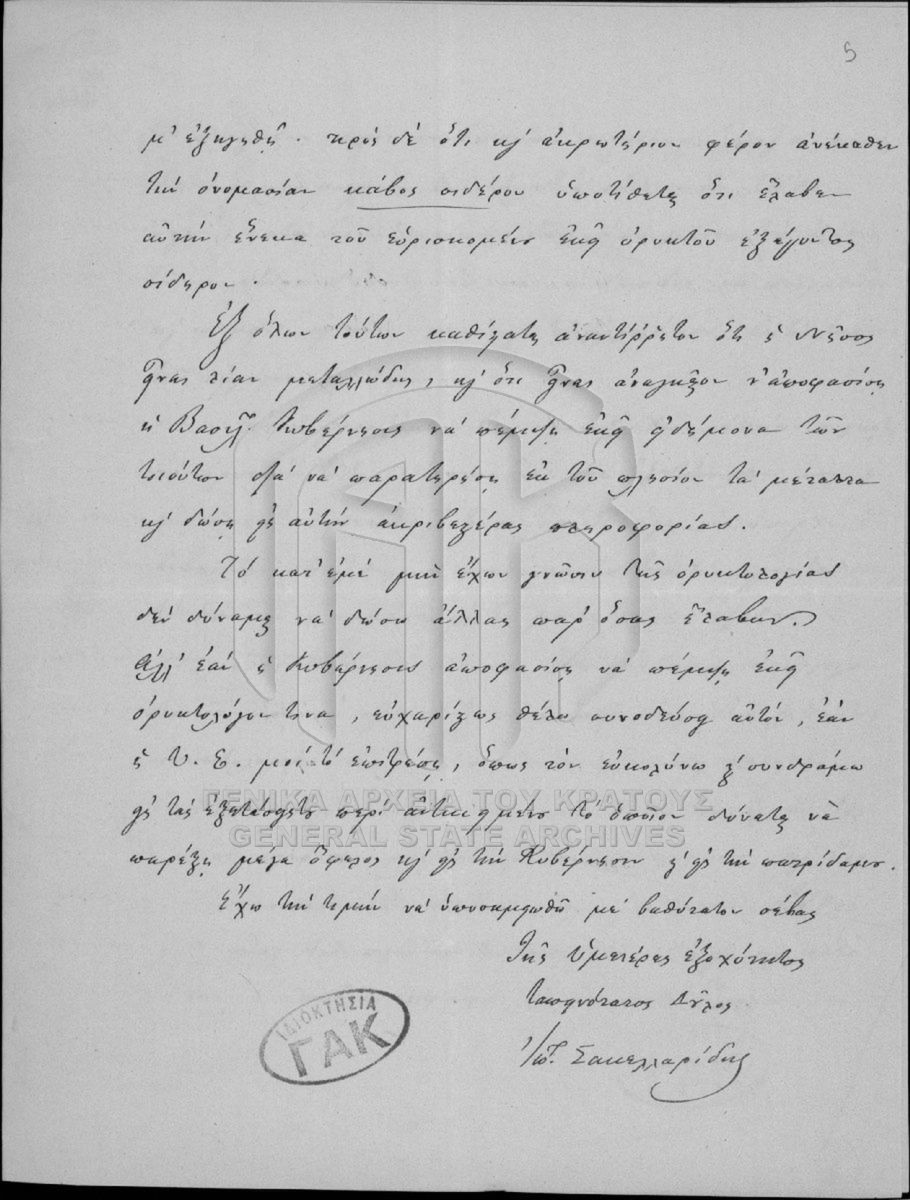 5
μ' ἐξηγηθῇ. πρὸς δὲ ὅτι κ' ἀκρωτήριον φέρον ἀνέκαθεν
τὴν ὀνομασίαν κάβος σιδέρου ὑποτίθεται ὅτι ἔλαβεν
αὐτὴν ἕνεκα τοῦ εὑρισκομένου ἐκεῖ ὀρυκτοῦ ἐξάγοντος
σίδηρον.
Ἐξ ὅλων τούτων καθίσταται ἀναντίῤῥητον ὅτι ἡ Νῆσος
εἶναι λίαν μεταλλώδης, κ' ὅτι εἶναι ἀναγκαῖον ν' ἀποφασίσῃ
ἡ Βασιλ. Κυβέρνησις νὰ πέμψῃ ἐκεῖ εἰδήμονα τῶν
τοιούτων διὰ νὰ παρατηρήσῃ ἐκ τοῦ πλησίον τὰ μέταλλα
κ' δώσῃ εἰς αὐτὴν ἀκριβεστέρας πληροφορίας.
Τὸ κατ' ἐμὲ μὴ ἔχων γνῶσιν τῆς ὀρυκτολογίας
δὲν δύναμαι νὰ δώσω ἄλλας παρ' ὅσας ἔλαβον.
Ἀλλ' ἐὰν ἡ Κυβέρνησις ἀποφασίσῃ νὰ πέμψῃ ἐκεῖ
ὀρυκτολόγον τινα, εὐχαρίστως θέλω συνοδεύσει αὐτόν, ἐὰν
ἡ Υ. Ε. μοὶ τὸ ἐπιτρέψῃ, ὅπως τὸν εὐκολύνω καὶ συνδράμω
εἰς τὰς ἐξετάσεις περὶ ἀντικειμένου τὸ ὁποῖον δύναται νὰ
παρέξῃ μέγα ὄφελος κ' εἰς τὴν Κυβέρνησιν καὶ εἰς τὴν πατρίδα μου.
Ἔχω τὴν τιμὴν νὰ ὑποσημειωθῶ μὲ βαθύτατον σέβας
Τῆς Ὑμετέρας ἐξοχότητος
ταπεινότατος δοῦλος
Ἰω. Σακελλαρίδης
ΙΔΙΟΚΤΗΣΙΑ
ΓΑΚ
ΓΕΝΙΚΑ ΑΡΧΕΙΑ ΤΟΥ ΚΡΑΤΟΥΣ
GENERAL STATE ARCHIVES